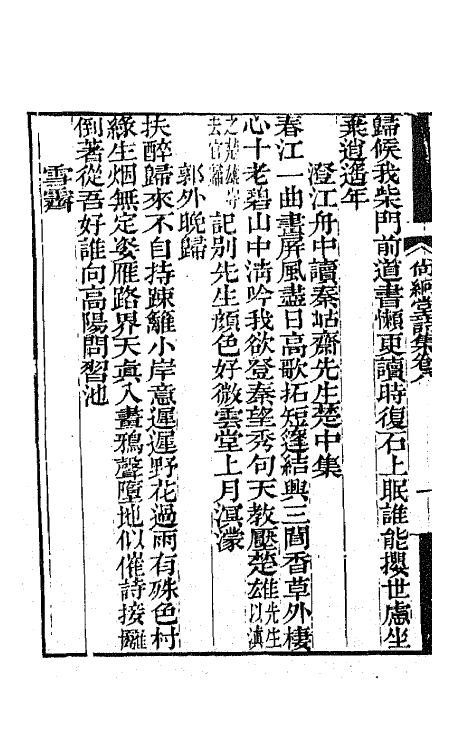 尚絅堂詩集卷八
歸候我柴門前道書懶更讀時復石上眠誰能攖世慮坐
棄逍遙年
澄江舟中讀秦岵齋先生楚中集
春江一曲畫屏風盡日高歌拓短篷結興三閭香草外棲
心十老碧山中清吟我欲登秦望秀句天教壓楚雄先生以滇
之楚雄守去官歸記別先生顔色好微雲堂上月溟濛
郭外晚歸
扶醉歸來不自持疎籬小岸意遲遲野花過雨有殊色村
緣生烟無定姿雁路界天眞入畫鴉聲墮地似催詩接䍦
倒著從吾好誰向高陽問習池
雪霽